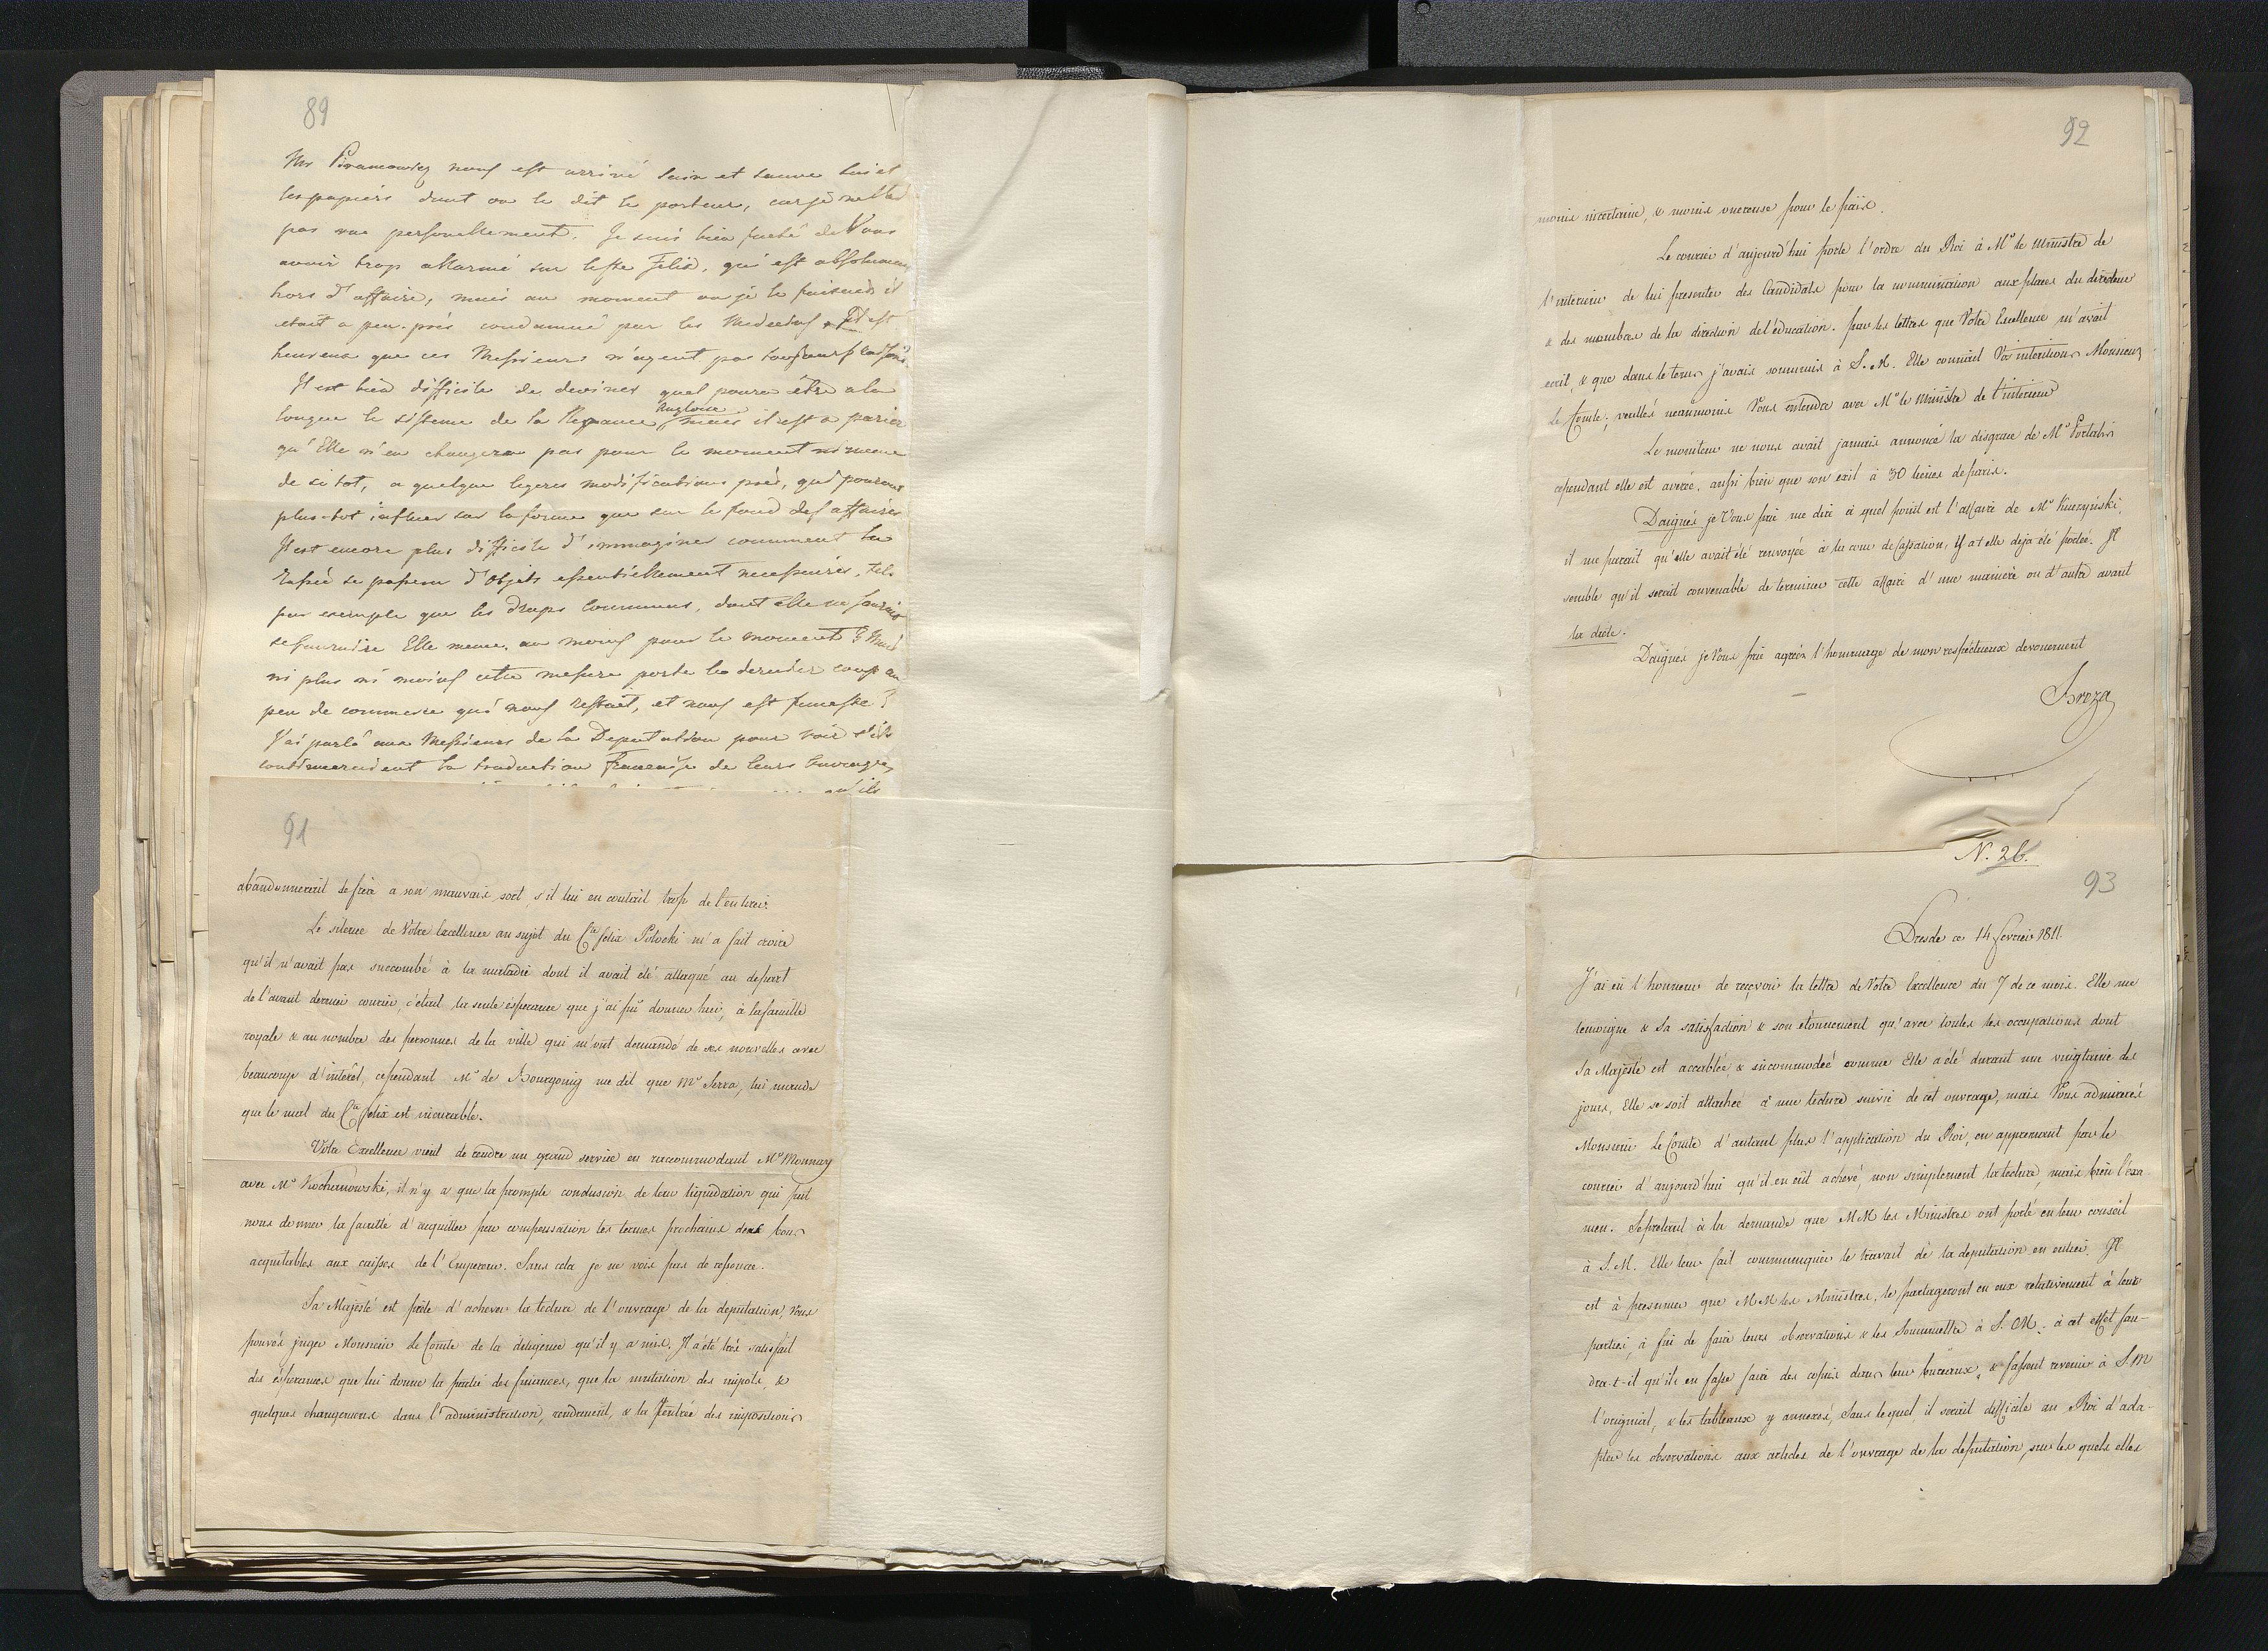 89
Mr Piramowicz nous est arrivé sain et sauve lui et
les papiers dont on le dit le porteur, car je ne l'ai
pas vue personellement. Je suis bien faché de Vous
avoir trop allarmé sur leste Felix, qui est absolumen
hors d'affaire, mais au moment ou je le faisais il
etait a peu-près condamné par les Medecins, Il est
heureux que ces Messieurs n'ayent pas toujours raison
Il est bien difficile de deviner quel poura être a la
longue le sisteme de la Regeance Angloise, mais il est a parier
qu'Elle n'en changera pas pour le moment ni meme
de si tot, a quelque legeres modifications près, qui pourons
plus-tot influer sur la forme que sur le fond des affaires
Il est encore plus difficile d'immaginer comment la
Russie se passera d'objets essentiellement necessaires, tels
par exemple que les Draps communs, dont elle ne saurait
se fournire Elle meme, au moins pour le moment
ni plus ni moins cette mesure porte le dernier coup au
peu de commerce qui nous restait, et nous est funeste
J'ai parlé aux Messieurs de la Deputation pour voir s'ils
continueraient la traduction Française de leurs Ouvrages
91
abandonnerait le frère a son mauvais sort, s'il lui en coutait trop de l'en tirer.
Le silence de Votre Excellence au sujet du Cte felix Potocki m'a fait croire
qu'il n'avait pas succombé à la maladie dont il avait été attaqué au depart
de l'avant dernier courier, c'était la seule esperance que j'ai pû donner hier, à la famille
royale & au nombre des personnes de la ville qui m'ont demandé de ses nouvelles avec
beaucoup d'intérêt, cependant Mr de Bourgoing me dit que Mr Serra, lui mande
que le mal du Cte felix est incurable.
Votre Excellence vient de rendre un grand service en raccommodant Mr Monnay
avec Mr Kochanowski, il n'y a que la prompte conclusion de leur liquidation qui put
nous donner la faculté d'acquitter par compensation les termes prochains des bons
acquitables aux caisses de l'Empereur. Sans cela je ne vois pas de ressource.
Sa Majesté est prête d'achever la lecture de l'ouvrage de la deputation, Vous
pouvés juger Monsieur Le Comte de la diligence qu'il y a mis. Il a été très satisfait
des esperances que lui donne la partie des finances, que la mutation des impots, &
quelques changemens dans l'administration, rendraient, & la rentrée des impositions
92
moins incertaine, & moins onereuse pour le païs.
Le courier d'aujourd'hui porte l'ordre du Roi à Mr le Ministre de
l'interieur de lui presenter des Candidats pour la nomination aux places du directeur
& des membres de la direction de l'éducation. par les lettres que Votre Excellence m'avait
ecrit, & que dans le tems j'avais soummis à S. M. Elle connait Vos intentions Monsieur
Le Comte; veuillés neanmoins Vous entendre avec Mr le Ministre de l'interieur
Le moniteur ne nous avait jamais annoncé la disgrace de Mr Portalis
cependant elle est averée, aussi bien que son exil à 30 lieues de paris.
Daignés je Vous prie me dire à quel point est l'affaire de Mr Kuczyński,
il me parait qu'elle avait été renvoyée à la cour de cassation, Y a t elle deja été portée. Il
semble qu'il serait convenable de terminer cette affaire d'une manière ou d'autre avant
la diete.
Daignés je Vous prie agréer l'hommage de mon respéctueux devouement
Breza
N. 26.
93
Dresde ce 14 fevrier 1811.
J'ai eü l'honneur de reçevoir la lettre de Votre Excellence du 7 de ce mois. Elle me
temoigne & Sa satisfaction & son étonnement qu'avec toutes les occupations dont
Sa Majesté est accablée, & incommodée comme Elle a été durant une vingtaine de
jours, Elle se soit attachée à une lecture suivie de cet ouvrage, mais Vous admirerés
Monsieur Le Comte d'autant plus l'application du Roi, en apprenant par le
courrier d'aujourd'hui qu'il en eüt achevé, non simplement la lecture, mais bien l'exa
men. Se pretant à la demande que MM les Ministres ont porté en leur conseil
à S. M. Elle leur fait communiquer le travail de la deputation en entier. Il
est à presumer que MM les Ministres, le partageront en eux relativement à leur
parties, à fin de faire leurs observations & les Soummettre à S. M. à cet effet fau-
dra-t-il qu'ils en fasse faire des copies dans leur bureaux, & fassent revenir à S. M
l'original, & les tableaux y annexés, Sans lequel, il serait difficile au Roi d'ada-
pter les observations aux articles de l'ouvrage de la deputation, sur les quels elles